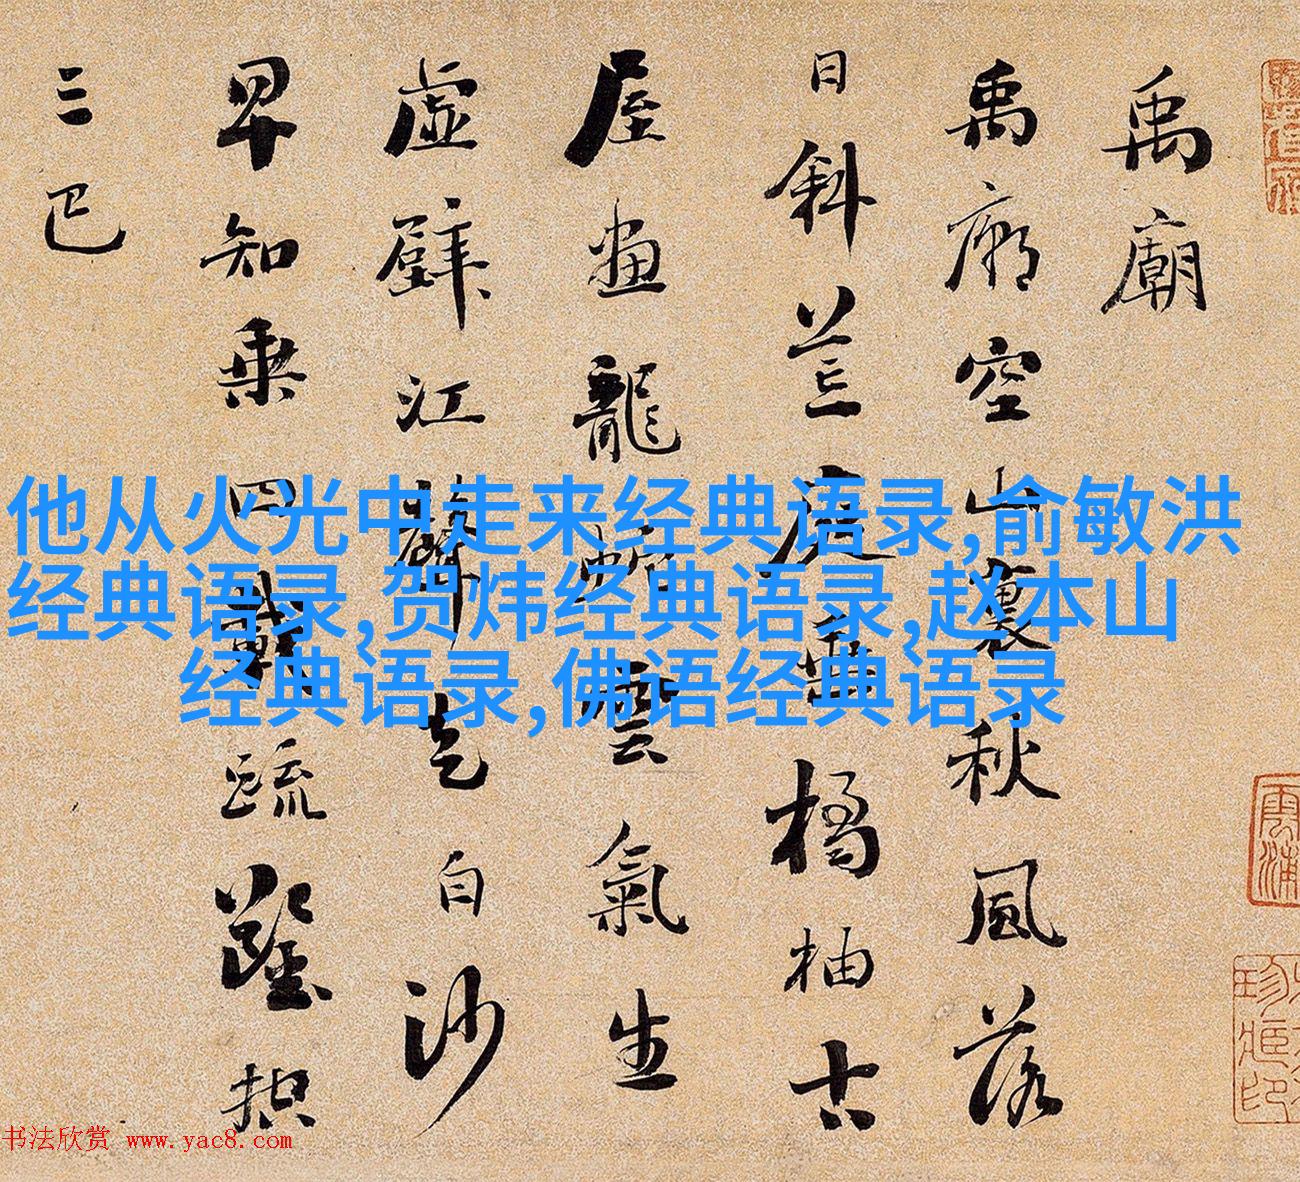 禹廟
禹廟空山裏秋風落
日斜荒庭垂橘柚古
屋畫龍蛇雲氣生
虛壁江聲走白沙
早知乘四載疏鑿控
三巴
他从火光中走来经典语录,俞敏洪
经典语录,贺炜经典语录,赵本山
经典语录,佛语经典语录
书法欣赏 www.yac8.com